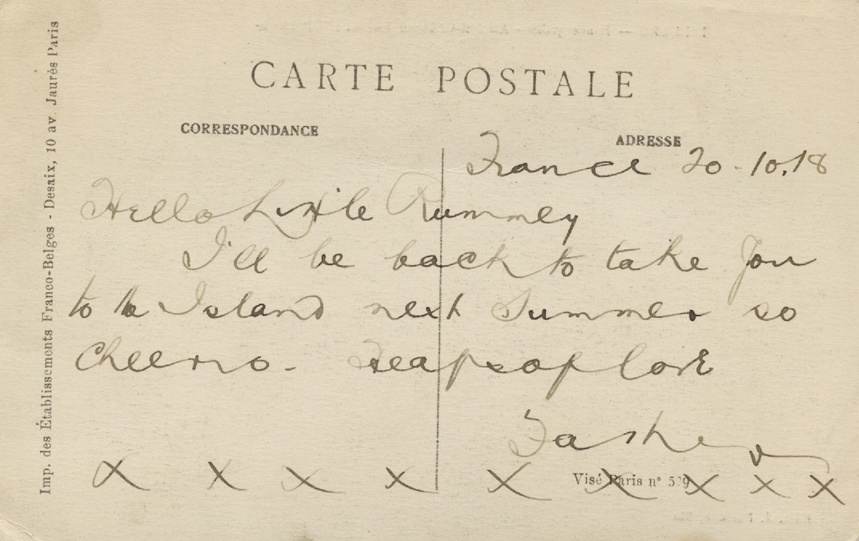 CARTE POSTALE
CORRESPONDANCE
ADRESSE
France 20-10.18
Hello Little Rummey
I'll be back to take you
to the Island next Summer so
Cheerio. Heaps of love
x x x x x x x x x
Visé Paris n° 5
Imp. des Établissements Franco-Belges - Desaix, 10 av. Jaurès Paris